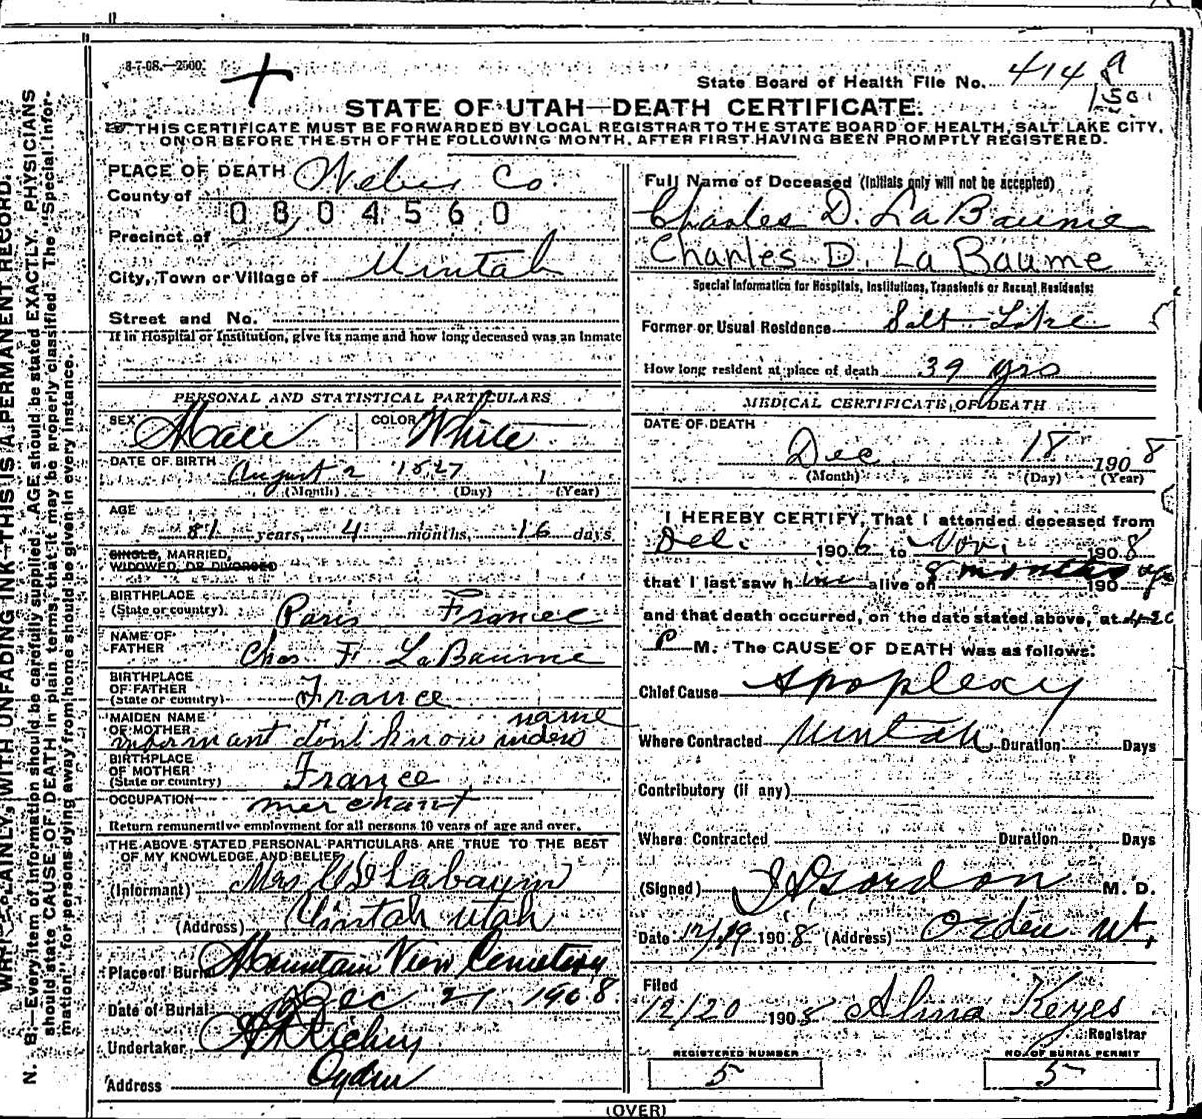 8-7-08.—2500
State Board of Health File No. 414
STATE OF UTAH—DEATH CERTIFICATE.
THIS CERTIFICATE MUST BE FORWARDED BY LOCAL REGISTRAR TO THE STATE BOARD OF HEALTH, SALT LAKE CITY,
ON OR BEFORE THE 5TH OF THE FOLLOWING MONTH, AFTER FIRST HAVING BEEN PROMPTLY REGISTERED.
PLACE OF DEATH
County of Weber Co.
0804560
Precinct of
City, Town or Village of Uintah
Street and No.
If in Hospital or Institution, give its name and how long deceased was an Inmate
PERSONAL AND STATISTICAL PARTICULARS
SEX Male COLOR White
DATE OF BIRTH August 2 1827
(Month) (Day) (Year)
AGE
81 years, 4 months, 16 days
SINGLE, MARRIED,
WIDOWED, OR DIVORCED
BIRTHPLACE
(State or country) Paris France
NAME OF
FATHER Chas. F. LaBaume
BIRTHPLACE
OF FATHER
(State or country) France
MAIDEN NAME name
OF MOTHER informant dont know
BIRTHPLACE
OF MOTHER
(State or country) France
OCCUPATION merchant
Return remunerative employment for all persons 10 years of age and over.
THE ABOVE STATED PERSONAL PARTICULARS ARE TRUE TO THE BEST
OF MY KNOWLEDGE AND BELIEF
(Informant) Mrs
(Address) Uintah Utah
Place of Burial Mountain View Cemetery
Date of Burial Dec 21 1908
Undertaker
Address Ogden
Full Name of Deceased (Initials only will not be accepted)
Charles D. La Baume
Charles D. La Baume
Special Information for Hospitals, Institutions, Transients or Recent Residents:
Former or Usual Residence Salt Lake
How long resident at place of death 39 yrs
MEDICAL CERTIFICATE OF DEATH
DATE OF DEATH
Dec 18 1908
(Month) (Day) (Year)
I HEREBY CERTIFY, That I attended deceased from
Dec. 1906 to Nov. 1908
that I last saw him alive on 8 months ago 190
and that death occurred, on the date stated above, at 4.20
P M. The CAUSE OF DEATH was as follows:
Chief Cause Apoplexy
Where Contracted Uintah Duration Days
Contributory (if any)
Where Contracted Duration Days
(Signed) Gordon M. D.
Date 12/19 1908 (Address) Ogden Ut.
Filed
12/20 1908 Alma Keyes
Registrar
REGISTERED NUMBER
5
NO. OF BURIAL PERMIT
5
(OVER)
PLAINLY, WITH UNFADING INK—THIS IS A PERMANENT RECORD.
N. B.—Every item of information should be carefully supplied. AGE should be stated EXACTLY. PHYSICIANS
should state CAUSE OF DEATH in plain terms, that it may be properly classified. The "Special Infor-
mation" for persons dying away from home should be given in every instance.